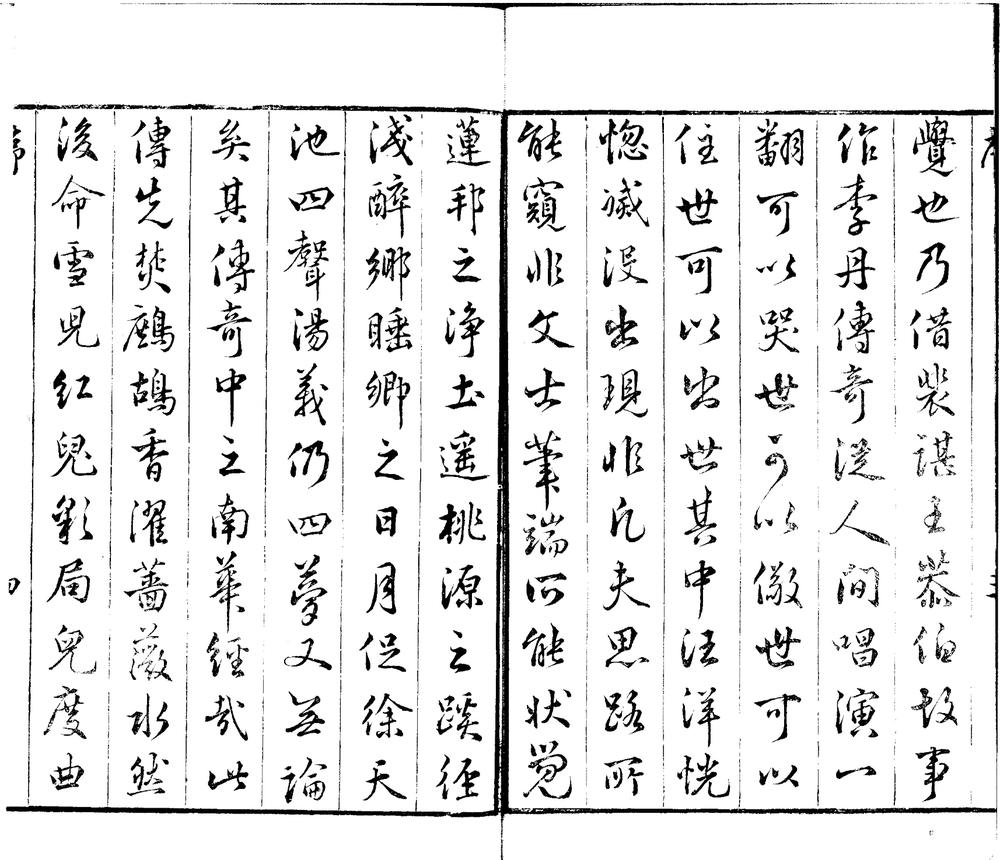 覺也乃借裴諶王恭伯故事
作李丹傳奇從人間唱演一
翻可以哭世可以儆世可以
住世可以出世其中汪洋恍
惚滅沒出現非凡夫思路所
能窺非文士筆端所能狀覺
蓮邦之淨土遥桃源之蹊徑
淺醉鄉睡鄉之日月促徐天
池四聲湯義仍四夢又無論
矣其傳奇中之南華經哉此
傳先焚鷓鴣香濯薔薇水然
後命雪兒紅兒彩局兒度曲
序